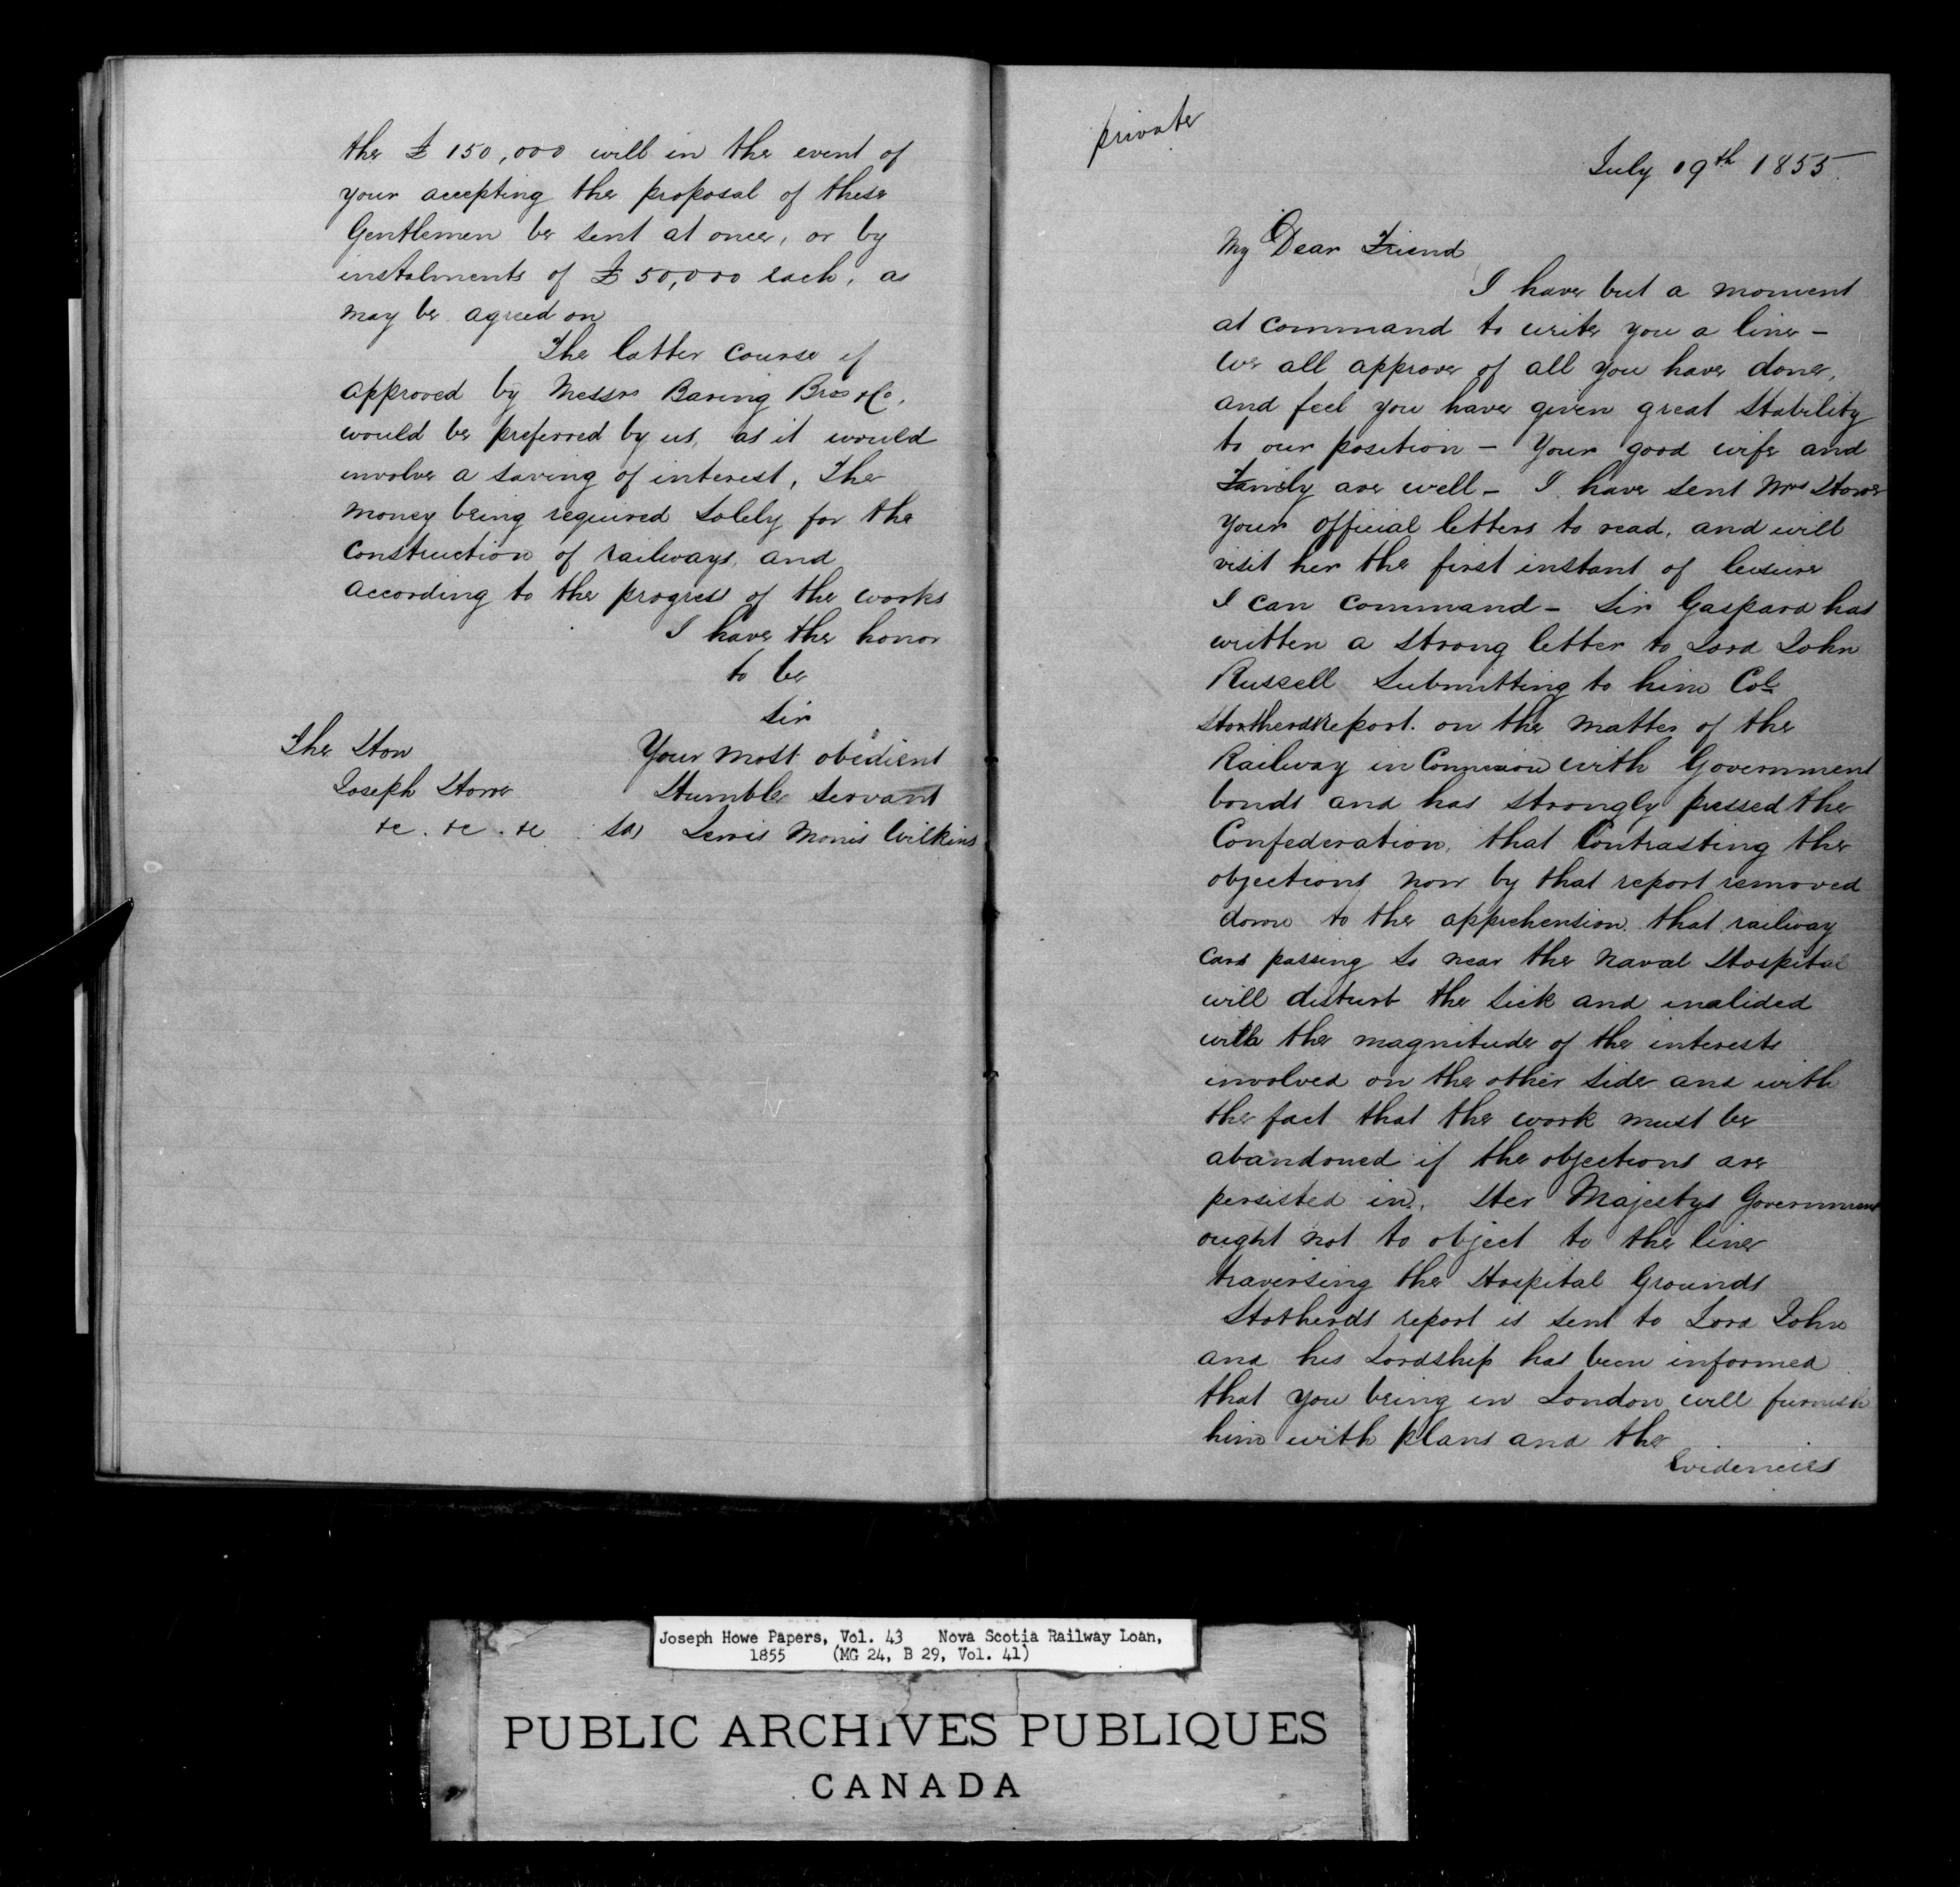 the £ 150,000 will in the event of
your accepting the proposal of these
Gentlemen be sent at once, or by
instalments of £ 50,000 each, as
may be agreed on
The latter course if
approved by Messrs Baring Bros & Co.
would be preferred by us, as it would
involve a saving of interest, The
money being required solely for the
construction of railways, and
according to the progress of the works
I have the honor
to be
Sir
The Hon
Your most obedient
Joseph Howe
Humble Servant
&c. &c. &c
Lewis Morris Wilkins
private
July 19th 1855.
My Dear Friend
I have but a moment
at command to write you a line –
we all approve of all you have done,
and feel you have given great stability
to our position – Your good wife and
Family are well – I have sent Mrs Howe
your official letters to read, and will
visit her the first instant of leisure
I can command – Sir Gaspard has
written a strong letter to Lord John
Russell submitting to him Col
Stotherds report. on the matter of the
Railway in Connexion with Government
bonds and has strongly pressed the
Confederation, that Contrasting the
objections now by that report removed
down to the apprehension that railway
cars passing so near the Naval Hospital
will disturb the sick and inalided
with the magnitude of the interests
involved on the other side and with
the fact that the work must be
abandoned if the objections are
persisted in, Her Majestys Government
ought not to object to the line
traversing the Hospital Grounds
Stotherds report is sent to Lord John
and his Lordship has been informed
that you being in London will furnish
him with plans and the
Evidencies
Joseph Howe Papers, Vol. 43 Nova Scotia Railway Loan,
1855 (MG 24, B 29, Vol. 41)
PUBLIC ARCHIVES PUBLIQUES
CANADA